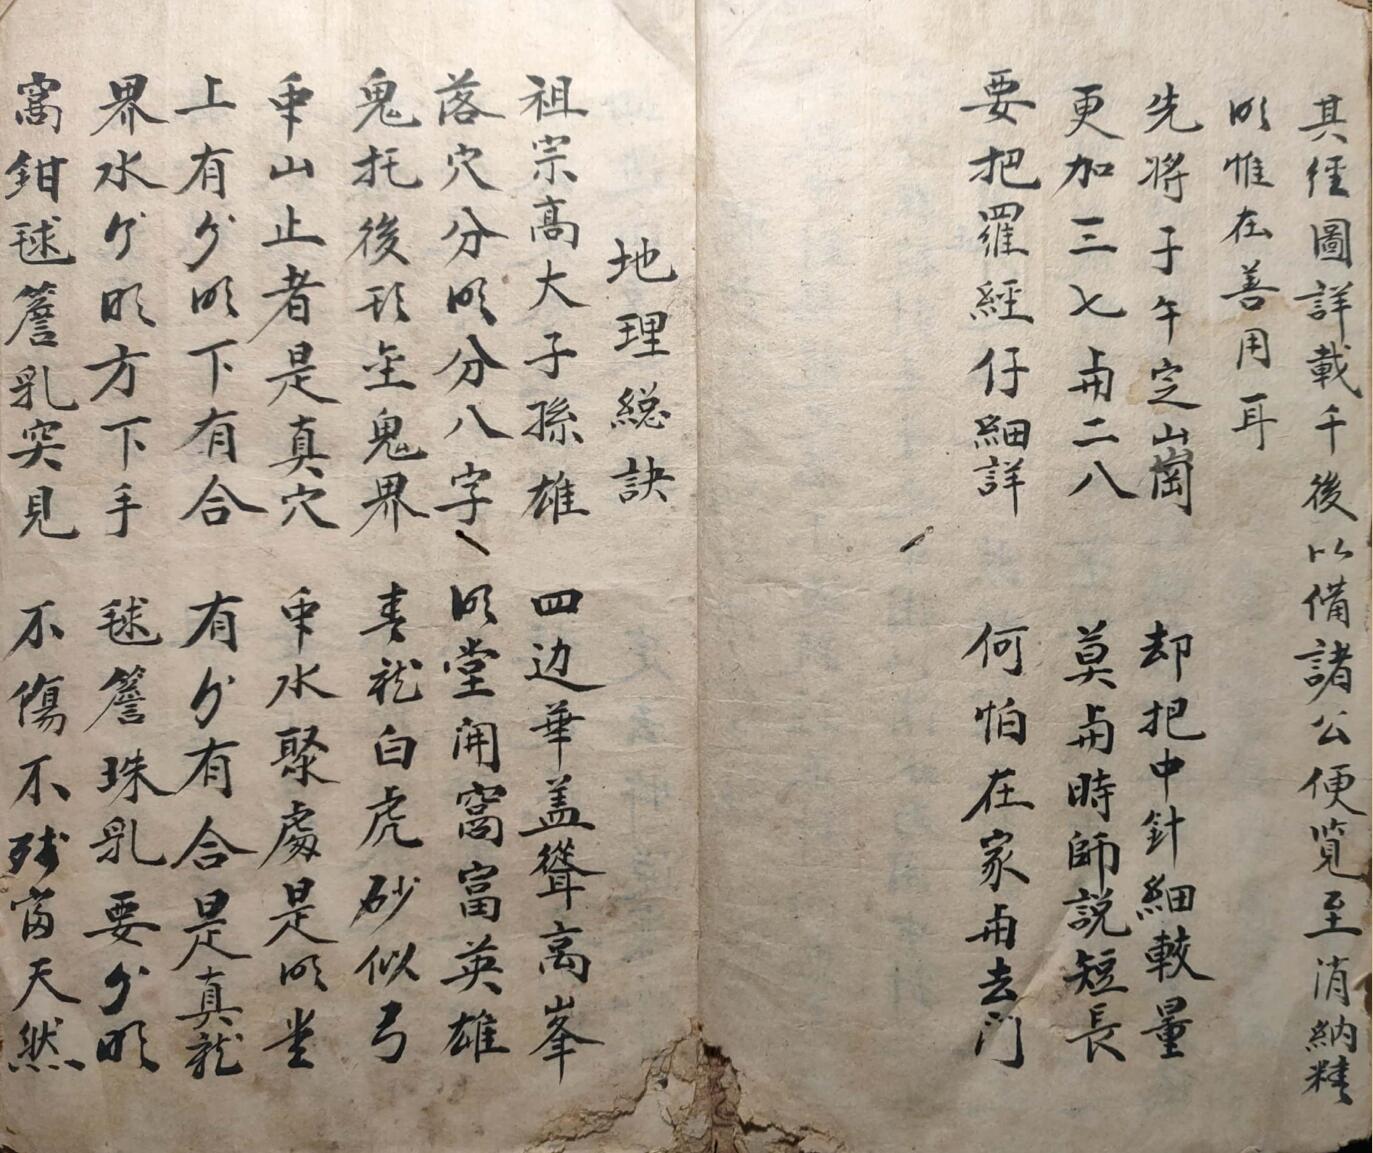 其徑圖詳載千後以備諸公便覧至消納精
明惟在善用耳
先將子午定山崗 却把中針細較量
更加三七與二八 莫與時師説短長
要把羅經仔細詳 何怕在家與去门
地理総訣
祖宗高大子孫雄 四边華盖聳高峯
落穴分明分八字 明堂開窩富英雄
鬼托後形至鬼界 青龍白虎砂似弓
來山止者是真穴 來水聚處是明堂
上有分明下有合 有分有合是真龍
界水分明方下手 毬簷珠乳要分明
窩鉗毬簷乳突見 不傷不残富天然